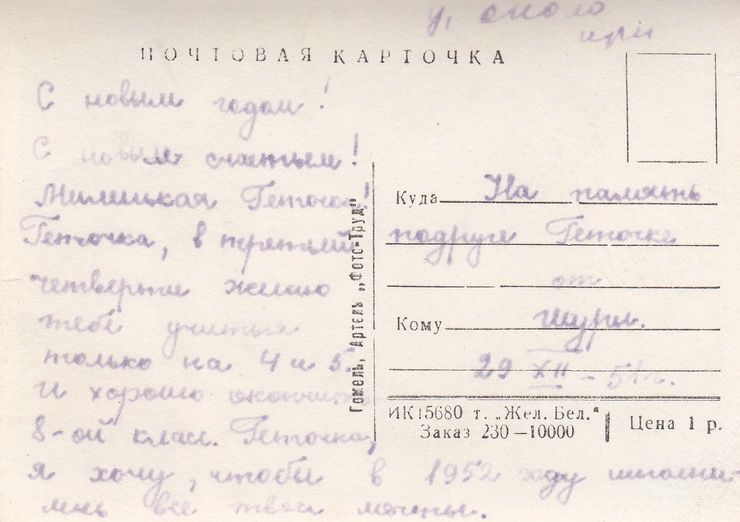 у, около
при
ПОЧТОВАЯ КАРТОЧКА
С новым годом!
С новым счастьем!
Миленькая Геточка!
Геточка, в третьей
четверти желаю
тебе учиться
только на 4 и 5.
И хорошо окончить
8-ой класс. Геточка,
я хочу, чтобы в 1952 году
все твои мечты.
Гомель, Артель „Фото-Труд"
Куда На память
подруге Геточке
от
Кому Шуры.
29 XII - 51 г.
ИК15680 т. „Жел. Бел."
Заказ 230—10000
Цена 1 р.